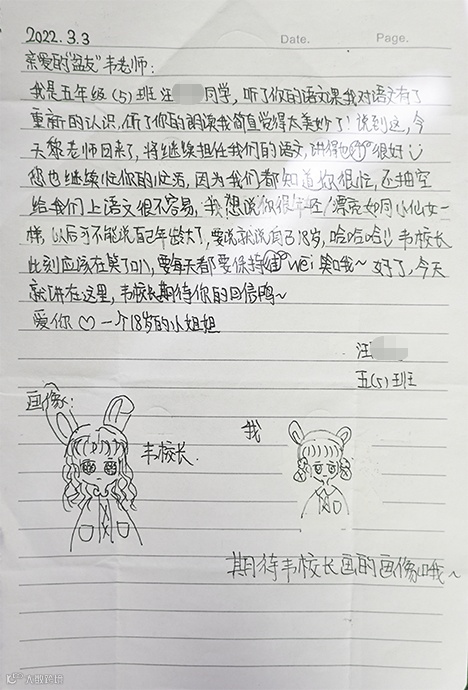 2022.3.3
Date.
Page.
亲爱的"盆友"韦老师:
我是五年级(5)班汪 同学，听了你的语文课我对语文有了
重新的认识，听了你的朗读我简直觉得太美妙了！说到这，今
天黎老师回来了，将继续担任我们的语文，讲得也很好
您也继续忙你的忙活，因为我们都知道你很忙，还抽空
给我们上语文很不容易，我想说你很年轻！漂亮如同小仙女一
样，以后可不能说自己年龄大了，要说就说自己18岁，哈哈哈!! 韦校长
此刻应该在笑了叭，要每天都要保持wei笑哦~ 好了，今天
就讲在这里，韦校长期待你的回信鸭~
爱你♡ 一个18岁的小姐姐
汪
五(5)班
画像:
韦校长.
我
期待韦校长画的画像哦~